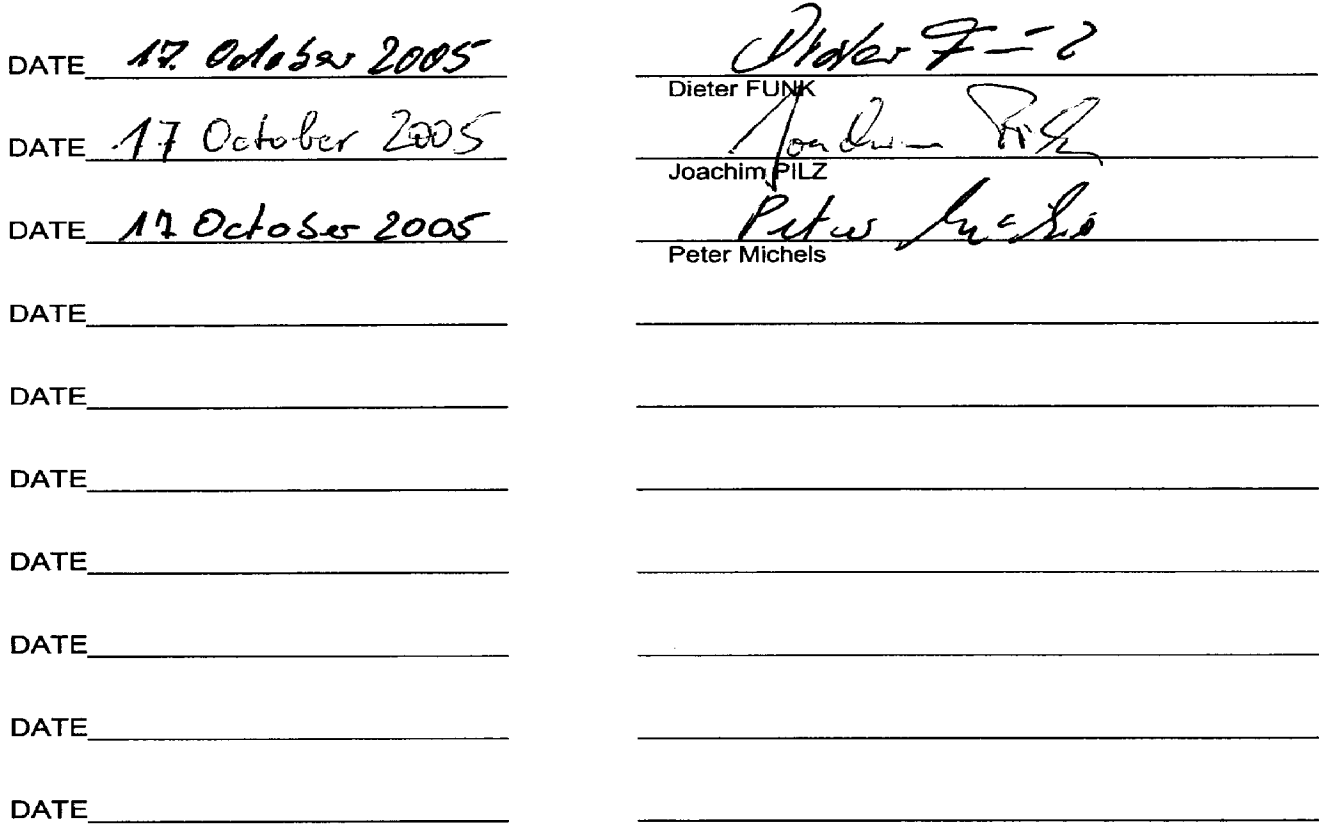 DATE 17. October 2005 Dieter Funk
Dieter FUNK
DATE 17 October 2005 Joachim Pilz
Joachim PILZ
DATE 17 October 2005 Peter Michels
Peter Michels
DATE
DATE
DATE
DATE
DATE
DATE
DATE